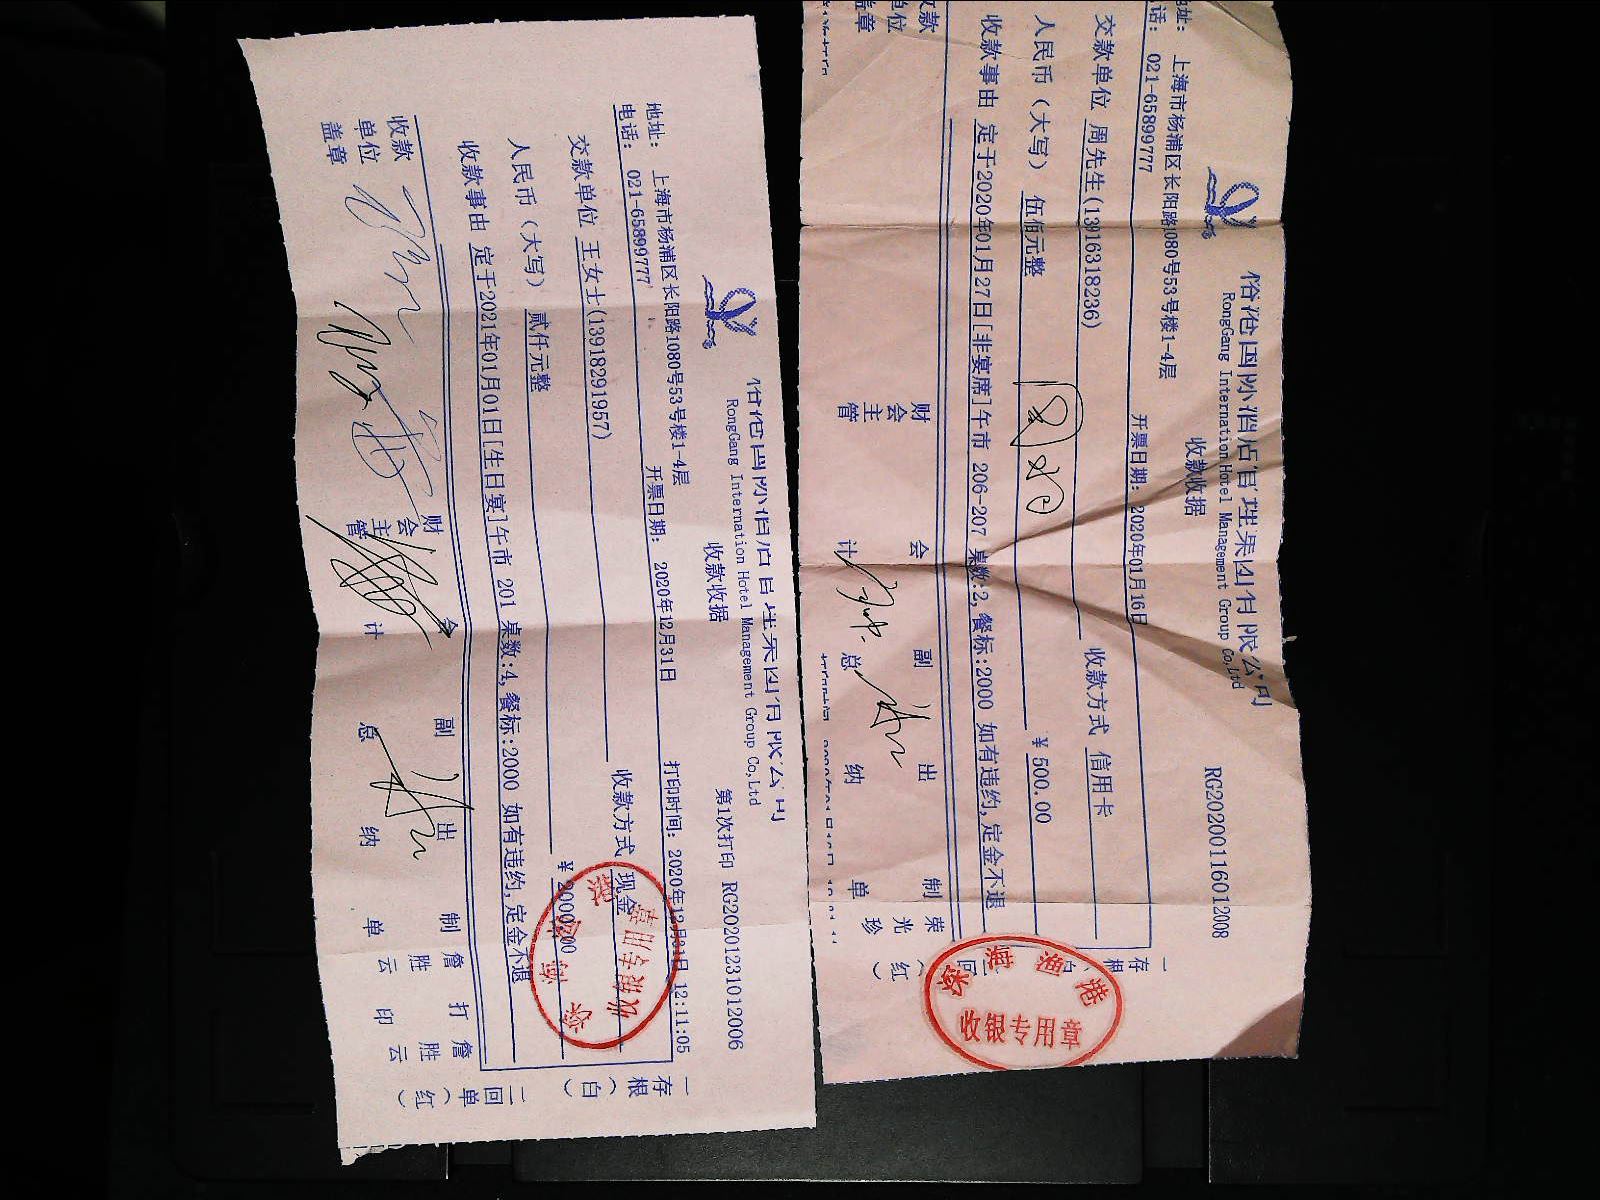 RongGang International Hotel Management Group Co,Ltd
收款收据
第1次打印 RG20201231012006
地址: 上海市杨浦区长阳路1080号53号楼1-4层
电话: 021-65899777
开票日期: 2020年12月31日
打印时间: 2020年12月31日 12:11:05
交款单位 王女士(13918291957)
收款方式 现金
人民币(大写) 贰仟元整
¥ 2000.00
收款事由 定于2021年01月01日[生日宴]午市 201 桌数:4,餐标:2000 如有违约,定金不退
收款单位盖章
财会主管
会计
副总
出纳
制单 詹胜云
打印 詹胜云
一存根(白)
二回单(红)
深海渔港
收银专用章
RongGang International Hotel Management Group Co,Ltd
收款收据
RG20200116012008
地址: 上海市杨浦区长阳路1080号53号楼1-4层
话: 021-65899777
开票日期: 2020年01月16日
交款单位 周先生(13916318236)
收款方式 信用卡
人民币(大写) 伍佰元整
¥ 500.00
收款事由 定于2020年01月27日[非宴席]午市 206-207 桌数:2,餐标:2000 如有违约,定金不退
收款单位盖章
财会主管
会计
副总
出纳
制单 荣光珍
一存根(白)
二回单(红)
深海渔港
收银专用章